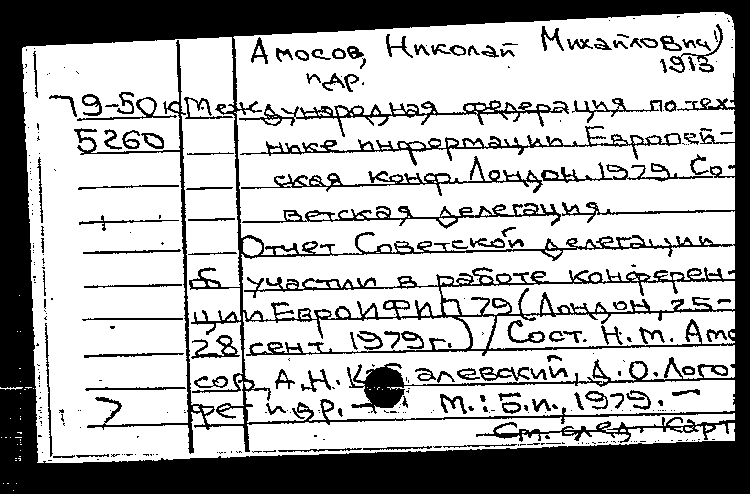 Амосов, Николай Михайлович,
1913
и др.
79-50к Международная федерация по тех-
5260 нике информации. Европей-
ская конф. Лондон. 1979. Со-
ветская делегация.
Отчет Советской делегации
б участии в работе конферен-
ции ЕвроИФИП 79 (Лондон, 25-
28 сент. 1979г.) / Сост. Н.М. Амо
сов, А.Н. К алевский, Д.О. Лого
фет и др. — М.: Б.и., 1979. —
См. след. карт